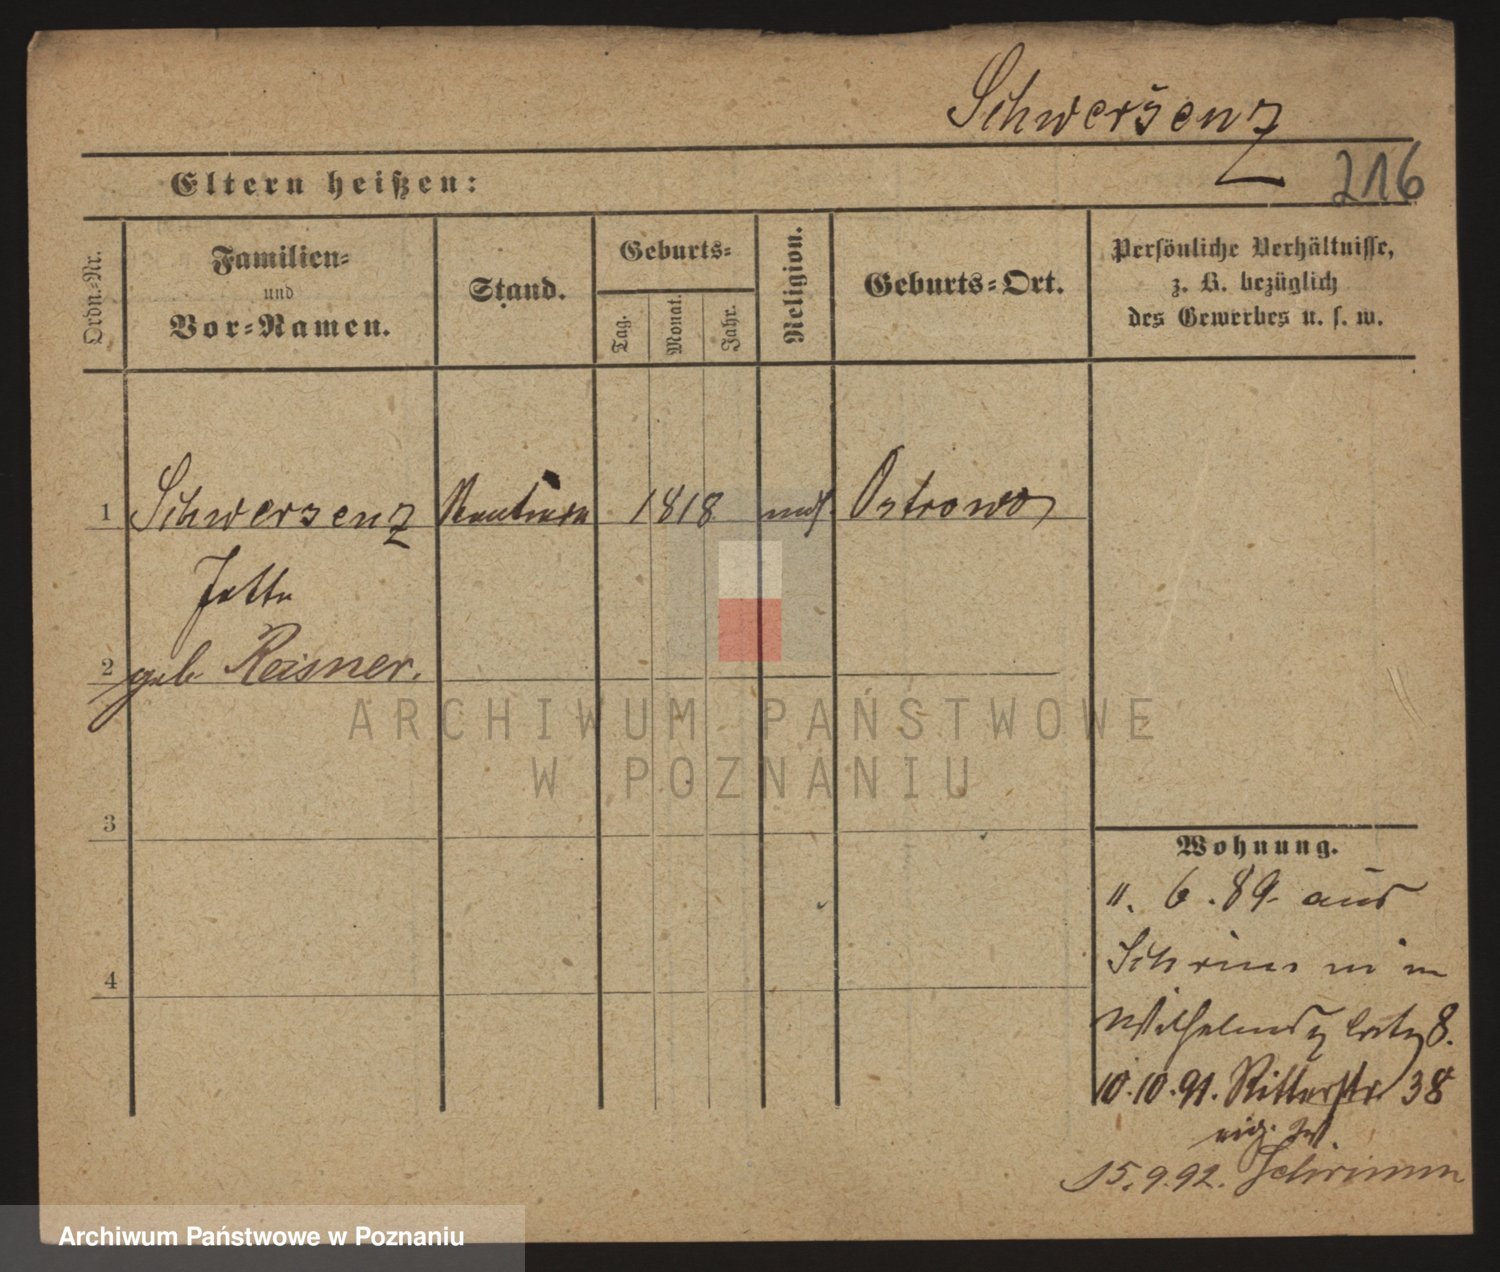 Schwersenz
216
Eltern heißen:
Ordn.-Nr.
Familien-
und
Vor-Namen.
Stand.
Geburts-
Tag.
Monat.
Jahr.
Religion.
Geburts-Ort.
Persönliche Verhältnisse,
z. B. bezüglich
des Gewerbes u. s. w.
1 Schwersenz Rentiere 1818 mos. Ostrowo
Jette
2 geb Reisner.
3
4
Wohnung.
11. 6. 89. aus
Schrimm
Wilhelmsplatz 8.
10.10.91. Ritterstr 38
15.9.92. Schrimm
ARCHIWUM PAŃSTWOWE
W POZNANIU
Archiwum Państwowe w Poznaniu